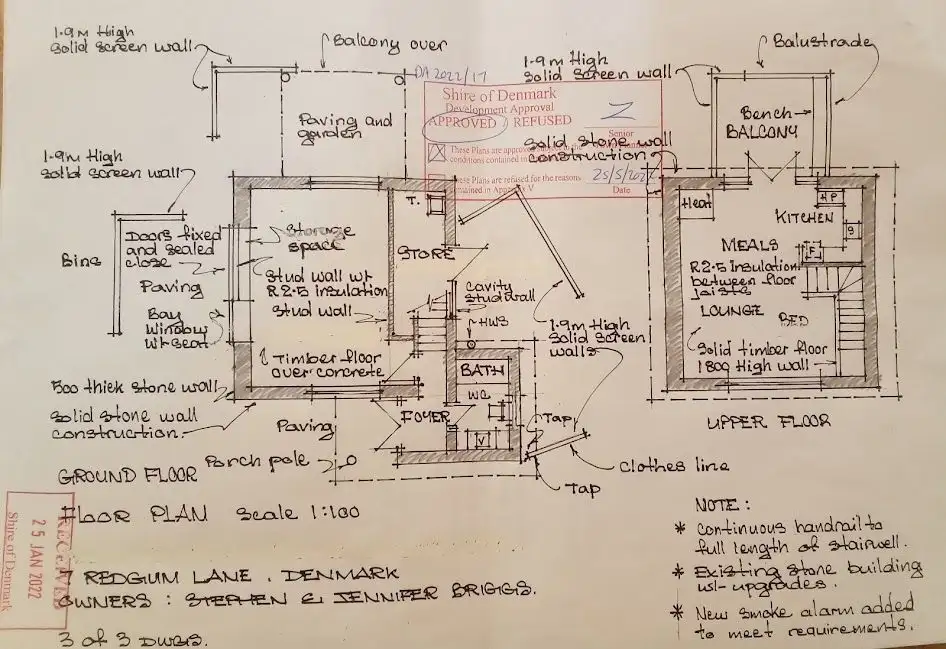 1.9m High
Solid Screen wall
Balcony over
DA 2022/17
1.9m High
Solid Screen wall
Balustrade
Shire of Denmark
Development Approval
APPROVED / REFUSED
Senior
These Plans are approved
conditions contained in
These Plans are refused for the reasons
contained in Appendix V
25/5/2022
Date
Paving and
garden
Solid stone wall
construction
Bench
BALCONY
1.9m High
Solid Screen wall
Bins
Doors fixed
and sealed
close
Paving
Bay
Window
wt seat
Storage
space
Stud wall wt
R2.5 insulation
Stud wall
T.
STORE
Cavity
stud wall
HWS
1.9m High
Solid Screen
walls
Timber floor
over concrete
500 thick stone wall
Solid Stone wall
construction
Paving
Porch pole
FOYER
BATH
WC
V
Tap
Tap
Clothes line
GROUND FLOOR
Heat
HP
KITCHEN
S
F
MEALS
R2.5 Insulation
between floor
joists
LOUNGE
BED
Solid timber floor
1800 High wall
UPPER FLOOR
FLOOR PLAN Scale 1:100
7 REDGUM LANE . DENMARK
OWNERS : STEPHEN & JENNIFER BRIGGS.
3 of 3 DWGS.
RECEIVED
25 JAN 2022
Shire of Denmark
NOTE :
* Continuous handrail to
full length of stairwell.
* Existing Stone building
wt- upgrades.
* New smoke alarm added
to meet requirements.